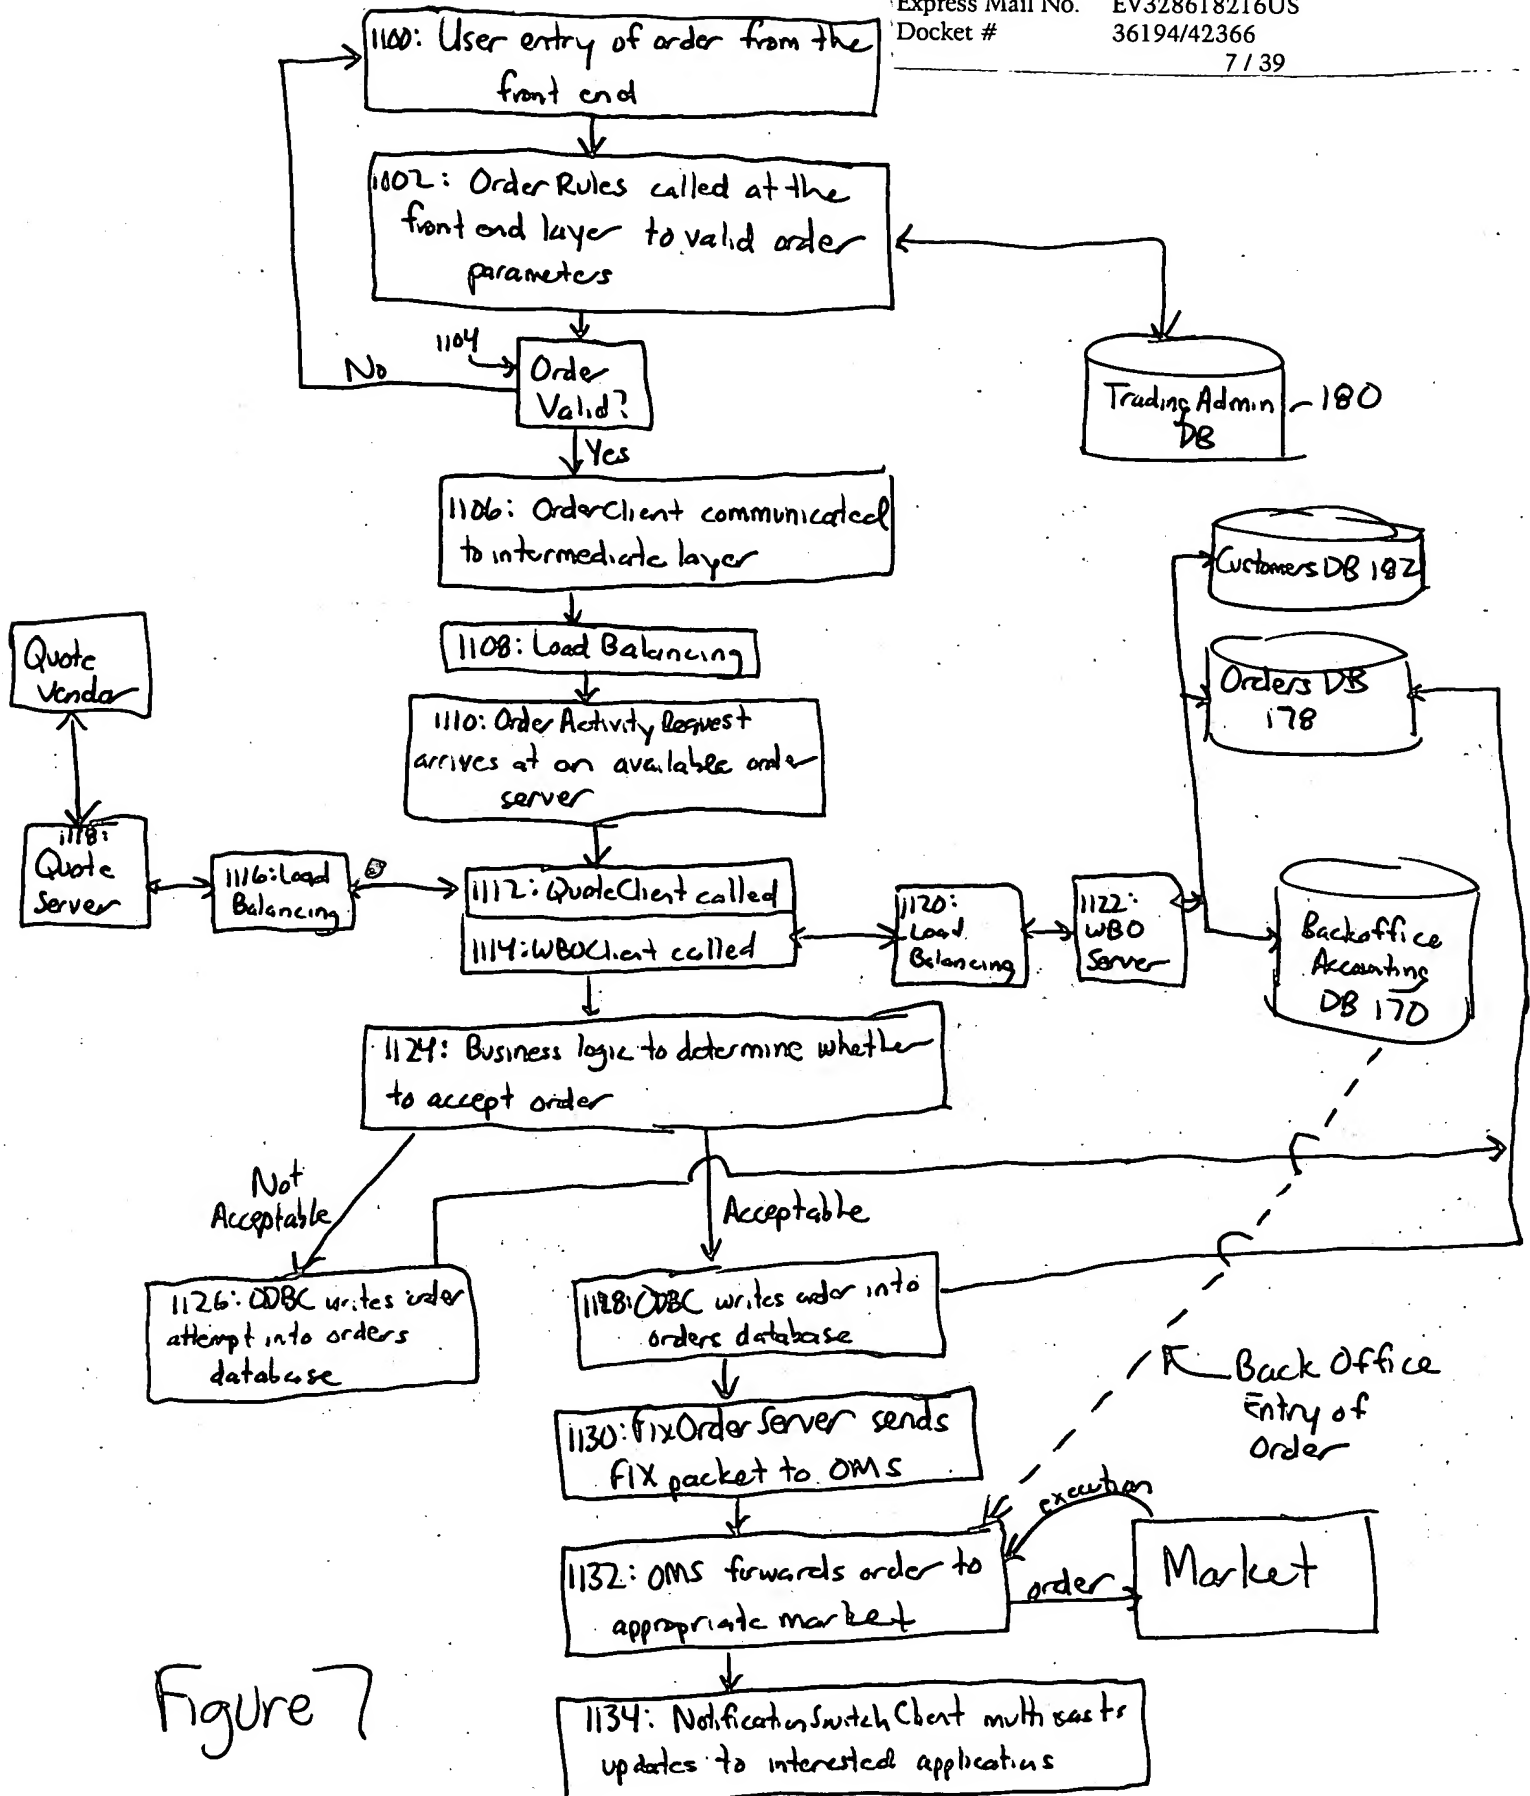 Express Mail No. EV328618216US
Docket # 36194/42366
7 / 39
1100: User entry of order from the
front end
1002: Order Rules called at the
front end layer to valid order
parameters
1104
Order
Valid?
No
Yes
Trading Admin
DB
180
1106: OrderClient communicated
to intermediate layer
Customers DB 182
1108: Load Balancing
Quote
Vendor
Orders DB
178
1110: Order Activity Request
arrives at an available order
server
1118:
Quote
Server
1116: Load
Balancing
1112: QuoteClient called
1114: WBOClient called
1120:
Load
Balancing
1122:
WBO
Server
Backoffice
Accounting
DB 170
1124: Business logic to determine whether
to accept order
Not
Acceptable
Acceptable
1126: ODBC writes order
attempt into orders
database
1128: ODBC writes order into
orders database
Back Office
Entry of
Order
1130: FixOrderServer sends
FIX packet to OMS
execution
1132: OMS forwards order to
appropriate market
order
Market
Figure 7
1134: NotificationSwitchClient multicasts
updates to interested applications